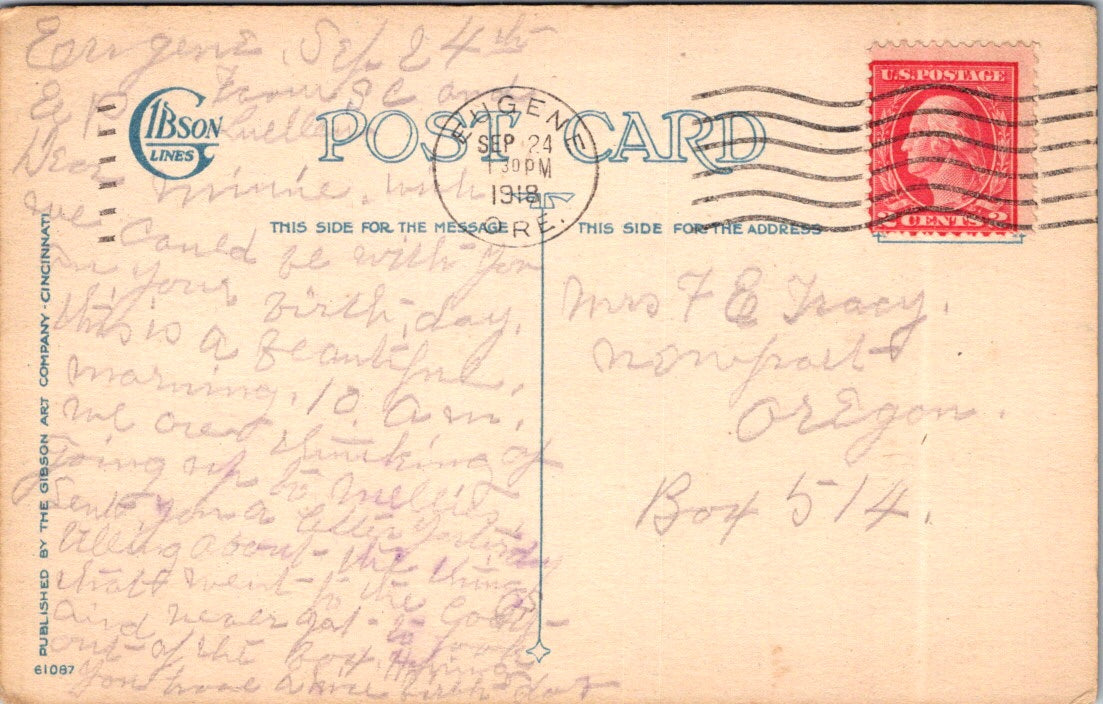 Eugene, Sep. 24th
From J C and
Luella
GIBSON
LINES
POST CARD
EUGENE
SEP 24
1 30 PM
1918
ORE.
U.S. POSTAGE
2 CENTS 2
THIS SIDE FOR THE MESSAGE
THIS SIDE FOR THE ADDRESS
Dear Minnie. wish
we could be with you
on your birth, day.
this is a beautiful,
morning. 10 a.m.
we are thinking of
going up to Nellies
sent you a letter yesterday
telling about the things
that went to the
and never got to
out of the Box. Hoping
you have a nice birth day
Mrs F E Tracy.
Newport
Oregon.
Box 514.
PUBLISHED BY THE GIBSON ART COMPANY - CINCINNATI
61087